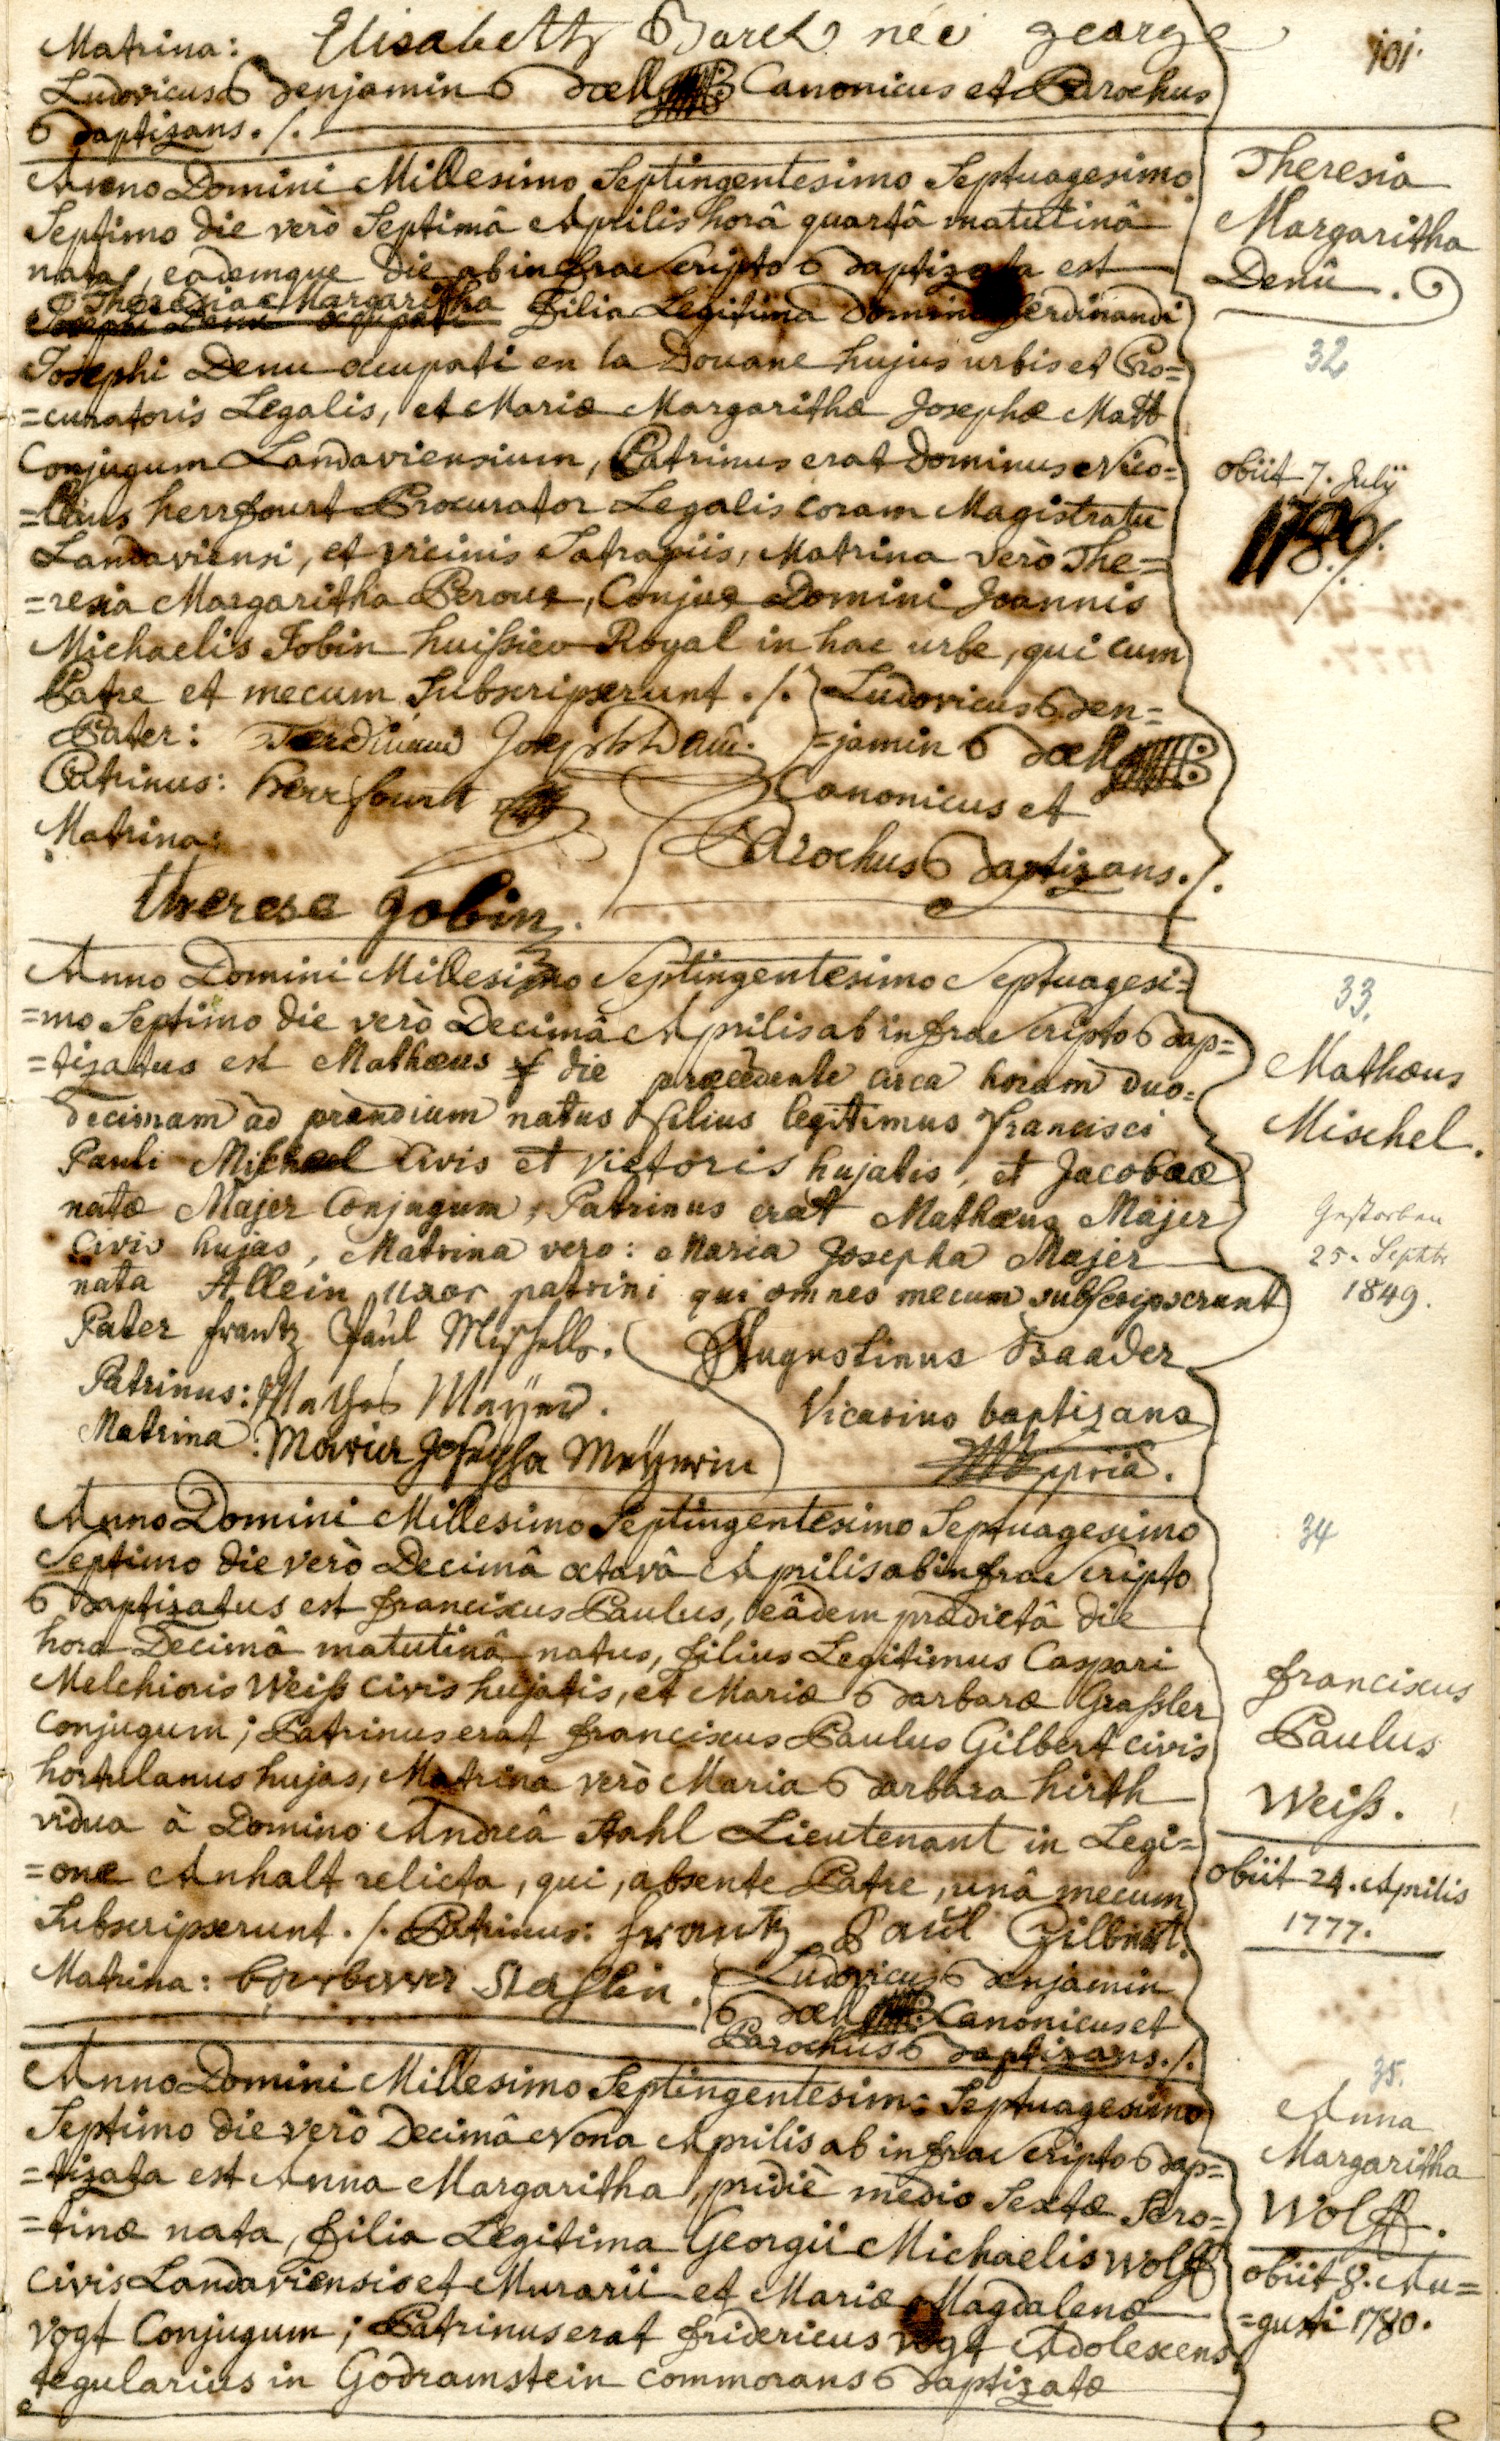 Matrina: Elisabeth Barck neé george
101.
Ludovicus Benjamin Boell Canonicus et Parochus
Baptizans ./.
Anno Domini Millesimo Septingentesimo Septuagesimo
Septimo die verò Septimâ Aprilis horâ quartâ matutinâ
nata, eademque die ab infrascripto Baptizata est
Theresia Margaritha Filia Legitima Domini Ferdinandi
Josephi Denu occupati en la Douane hujus urbis et Pro=
=curatoris Legalis, et Mariæ Margarithæ Josephæ Matt
Conjugum Landaviensium, Patrinus erat Dominus Nico=
=laus herrfourt Procurator Legalis coram Magistratu
Landaviensi, et vicinis Satrapiis, Matrina verò The=
=resia Margaritha Peroux, Conjux Domini Joannis
Michaelis Jobin huissier Royal in hac urbe, qui cum
Patre et mecum Subscripserunt ./.
Pater: Ferdinand Joseph Denû.
Patrinus: herrfourt
Matrina:
therese Jobin
Ludovicus Ben=
=jamin Boell
Canonicus et
Parochus Baptizans ./.
Theresia
Margaritha
Denû.
32
obiit 7. Julij
1780 ./.
Anno Domini Millesimo Septingentesimo Septuagesi=
=mo Septimo die verò Decimâ Aprilis ab infrascripto Bap=
=tizatus est Mathæus die præcedente circa horam duo=
decimam ad prandium natus filius legitimus Francisci
Pauli Michael Civis et vietoris hujatis, et Jacobææ
natæ Majer Conjugum, Patrinus erat Mathæus Majer
Civis hujas, Matrina vero: Maria Josepha Majer
nata Allein uxor patrini qui omnes mecum subscripserunt
Pater frantz Paul Mischell.
Patrinus: Mathes Mayer.
Matrina: Maria Josepha Mayerin
Augustinus Baader
Vicarius baptizans
Mppria.
33.
Mathæus
Mischel.
Gestorben
25. Septbr
1849.
Anno Domini Millesimo Septingentesimo Septuagesimo
Septimo die verò Decimâ octavâ Aprilis ab infrascripto
Baptizatus est franciscus Paulus, eâdem prædictâ die
hora Decimâ matutinâ natus, filius Legitimus Caspari
Melchioris Weiß civis hujatis, et Mariæ Barbaræ Graßler
Conjugum; Patrinus erat franciscus Paulus Gilbert civis
hortulanus hujas, Matrina verò Maria Barbara hirth
vidua à Domino Andreâ Stahl Lieutenant in Legi=
=one Anhalt relicta, qui, absente Patre, unâ mecum
Subscripserunt ./. Patrinus: frantz Paul Gilbert.
Matrina: barbara Stahlin.
Ludovicus Benjamin
Boell Canonicus et
Parochus Baptizans ./.
34
franciscus
Paulus
Weiß.
obiit 24. Aprilis
1777.
Anno Domini Millesimo Septingentesimo Septuagesimo
Septimo die verò Decimâ Nona Aprilis ab infrascripto Bap=
=tizata est Anna Margaritha, pridiè mediò Sextæ Sero=
=tinæ nata, filia Legitima Georgii Michaelis Wolff
Civis Landaviensis et Murarii et Mariæ Magdalenæ
Vogt Conjugum; Patrinus erat fridericus Vogt Adolescens
tegularius in Godramstein commorans Baptizatæ
35.
Anna
Margaritha
Wolff.
obiit 8. Au=
=gusti 1780.